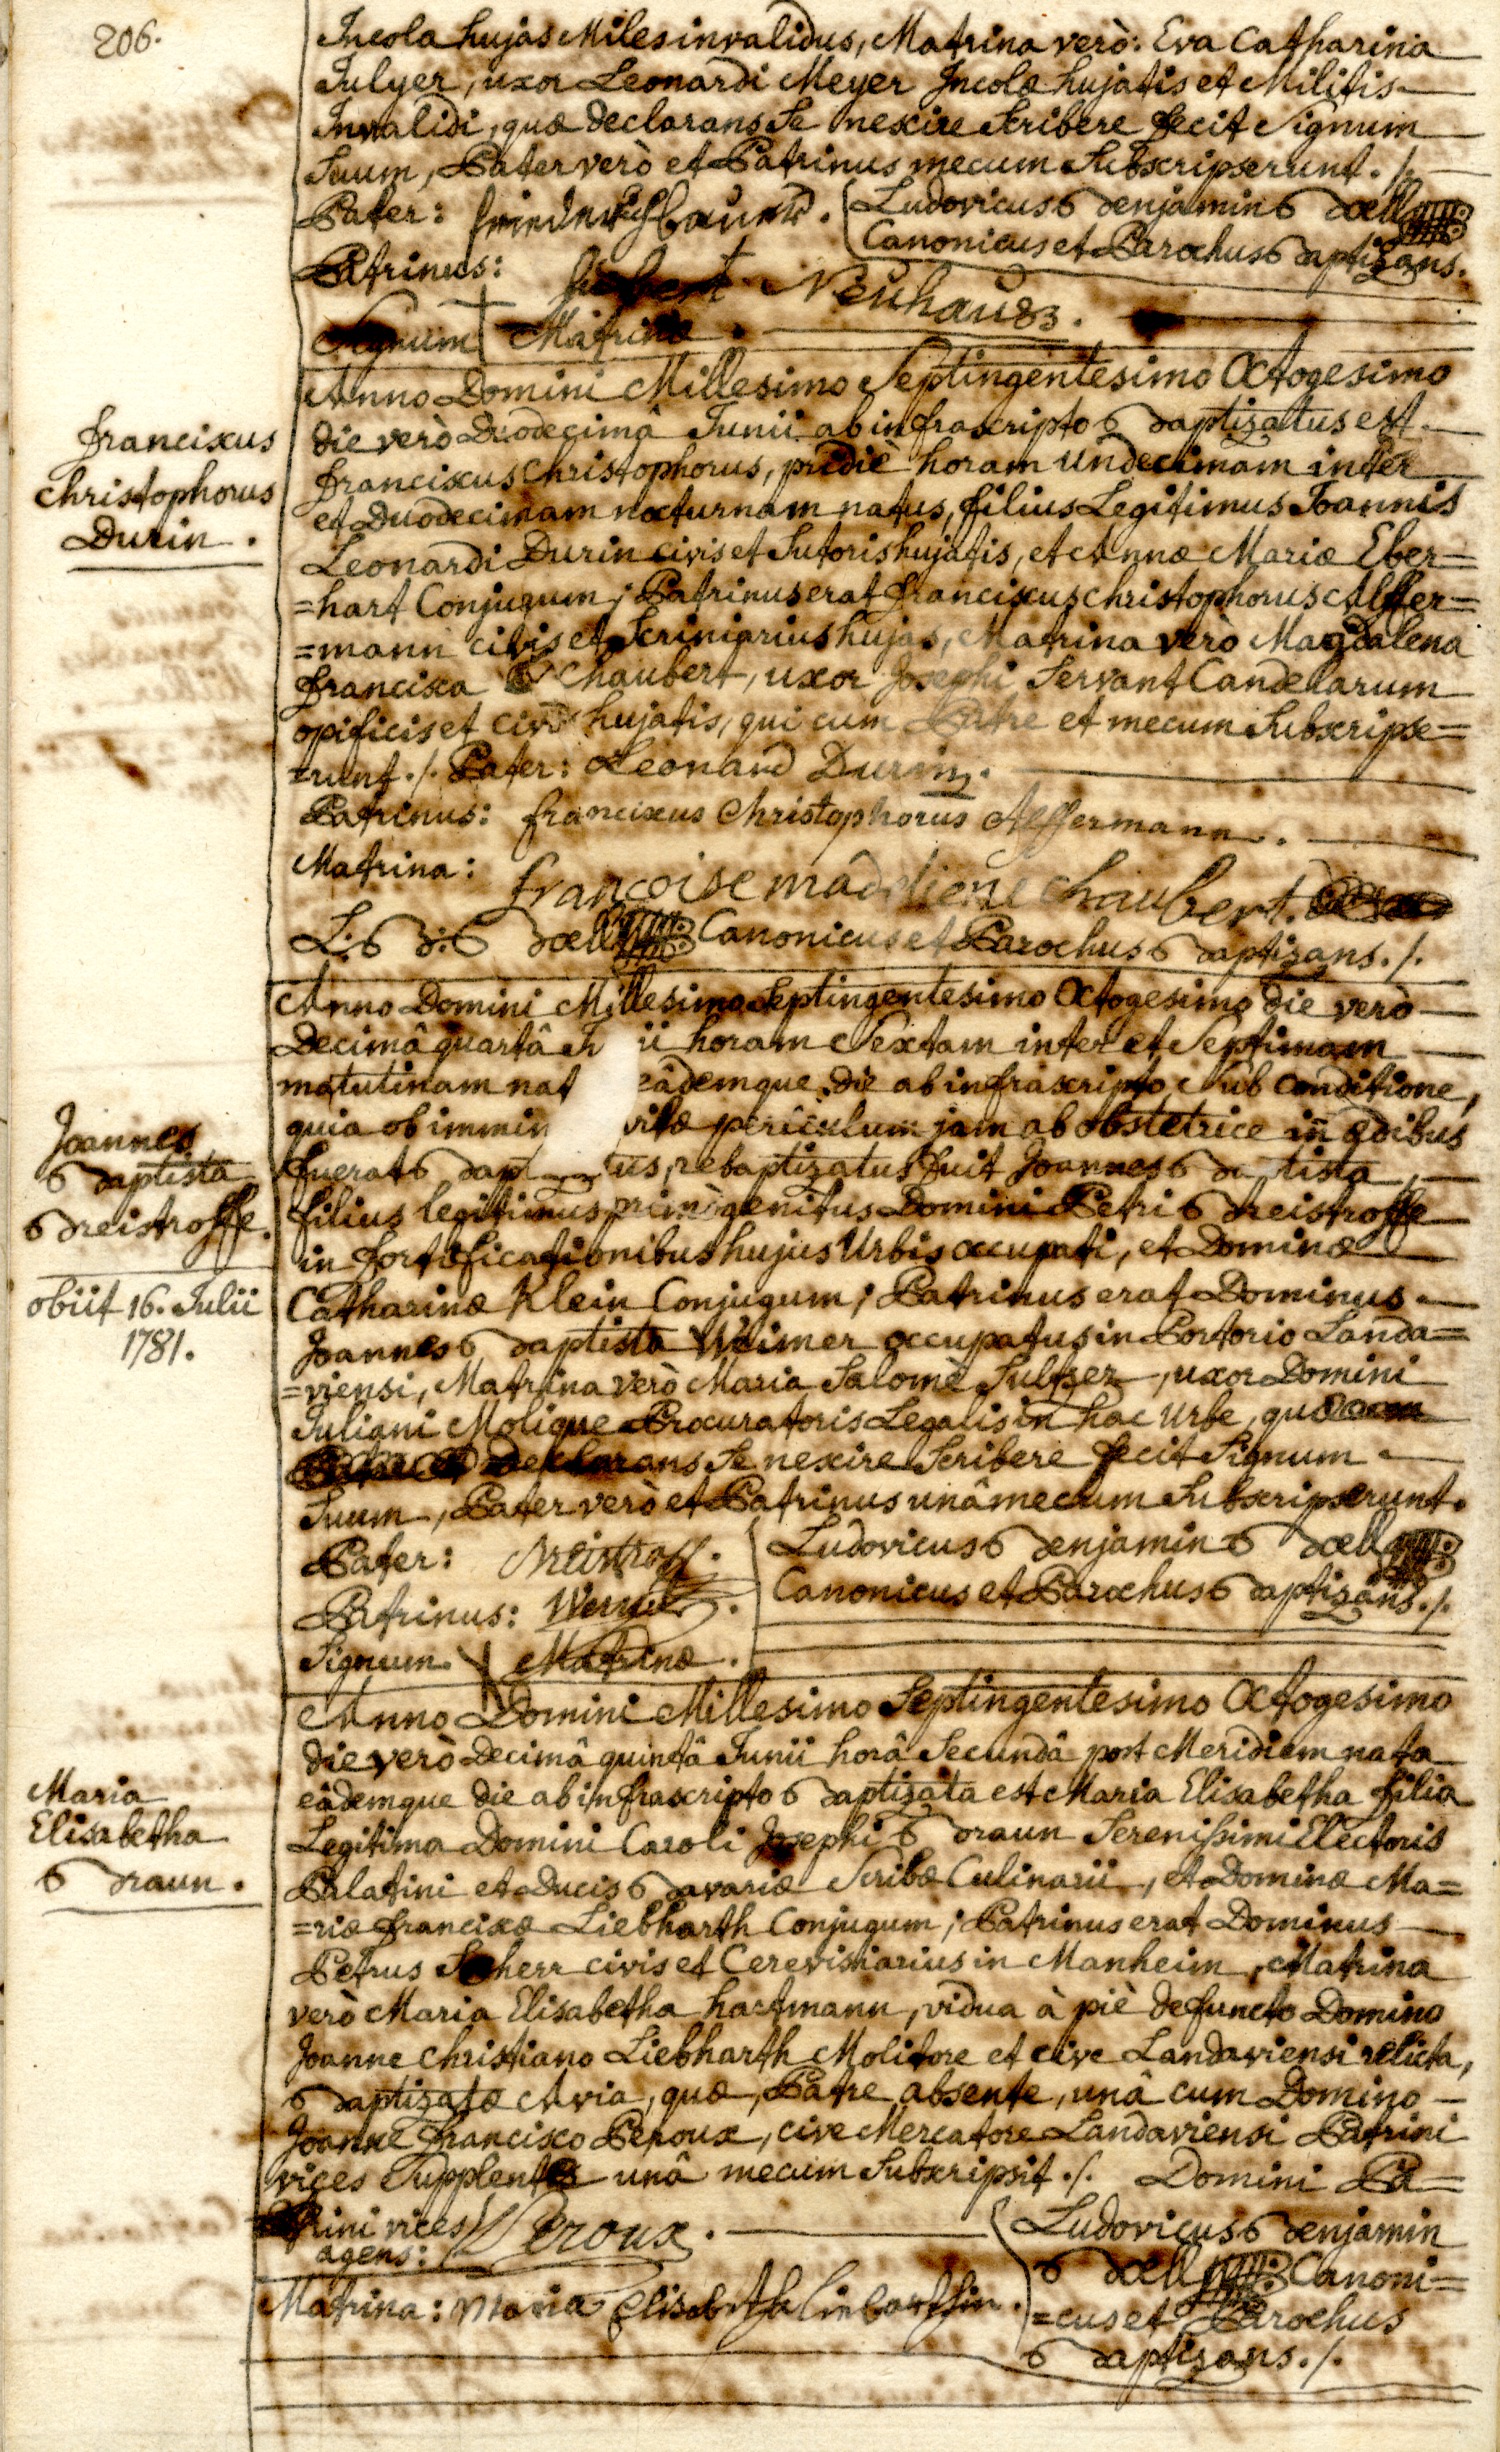 206.
Incola hujas Miles invalidus, Matrina verò: Eva Catharina
Julyer, uxor Leonardi Meyer Incolæ hujatis et Militis
Invalidi, quæ declarans se nescire scribere fecit signum
suum, Pater verò et Patrinus mecum subscripserunt ./.
Pater: Friedrich Bauer. Ludovicus Benjamin Boell
Canonicus et Parochus Baptizans.
Patrinus: Neuhaus.
Signum Matrinæ.
Franciscus
Christophorus
Durin.
Anno Domini Millesimo Septingentesimo Octogesimo
die verò Duodecimâ Junii ab infrascripto Baptizatus est
Franciscus Christophorus, pridiè horam undecimam inter
et Duodecimam nocturnam natus, filius Legitimus Joannis
Leonardi Durin civis et Sutoris hujatis, et Annæ Mariæ Eber=
=hart Conjugum; Patrinus erat Franciscus Christophorus Affer=
=mann civis et Scriniarius hujas, Matrina verò Magdalena
Francisca Chaubert, uxor Josephi Servant Candelarum
opificis et civis hujatis, qui cum Patre et mecum subscripse=
=runt ./. Pater: Leonard Durin.
Patrinus: Franciscus Christophorus Affermann.
Matrina: françoise madeliene chaubert.
L: B: Boell Canonicus et Parochus Baptizans ./.
Joannes
Baptista
Breistroffe.
obiit 16. Julii
1781.
Anno Domini Millesimo Septingentesimo Octogesimo die verò
Decimâ quartâ Ju ii horam Sextam inter et Septimam
matutinam nat eâdemque die ab infrascripto sub conditione,
quia ob immin vitæ periculum jam ab obstetrice in ædibus
fuerat Bapt tus, rebaptizatus fuit Joannes Baptista
filius legitimus primògenitus Domini Petri Breistroffe
in fortificationibus hujus Urbis occupati, et Dominæ
Catharinæ Klein Conjugum; Patrinus erat Dominus
Joannes Baptista Weimer occupatus in Portorio Landa=
=viensi, Matrina verò Maria Salomè Sultzer, uxor Domini
Juliani Molique Procuratoris Legalis in hac Urbe, quæ
Declarans se nescire scribere fecit Signum
suum, Pater verò et Patrinus unâ mecum subscripserunt.
Pater: Breistroff. Ludovicus Benjamin Boell
Canonicus et Parochus Baptizans ./.
Patrinus: Weimer.
Signum Matrinæ.
Maria
Elisabetha
Braun.
Anno Domini Millesimo Septingentesimo Octogesimo
die verò Decimâ quintâ Junii horâ Secundâ post Meridiem nata
eâdemque die ab infrascripto Baptizata est Maria Elisabetha filia
Legitima Domini Caroli Josephi Braun Serenissimi Electoris
Palatini et Ducis Bavariæ Scribæ Culinarii, et Dominæ Ma=
=riæ Franciscæ Liebharth Conjugum; Patrinus erat Dominus
Petrus Scherr civis et Cerevisiarius in Manheim, Matrina
verò Maria Elisabetha Hartmann, vidua à piè defuncto Domino
Joanne Christiano Liebharth Molitore et cive Landaviensi relicta,
Baptizatæ Avia, quæ, Patre absente, unâ cum Domino
Joanne Francisco Peroux, cive Mercatore Landaviensi Patrini
vices supplente unâ mecum subscripsit ./. Domini Pa=
=trini vices
agens: Peroux.
Ludovicus Benjamin
Boell Canoni=
=cus et Parochus
Baptizans ./.
Matrina: Maria Elisabetha Liebarthin.